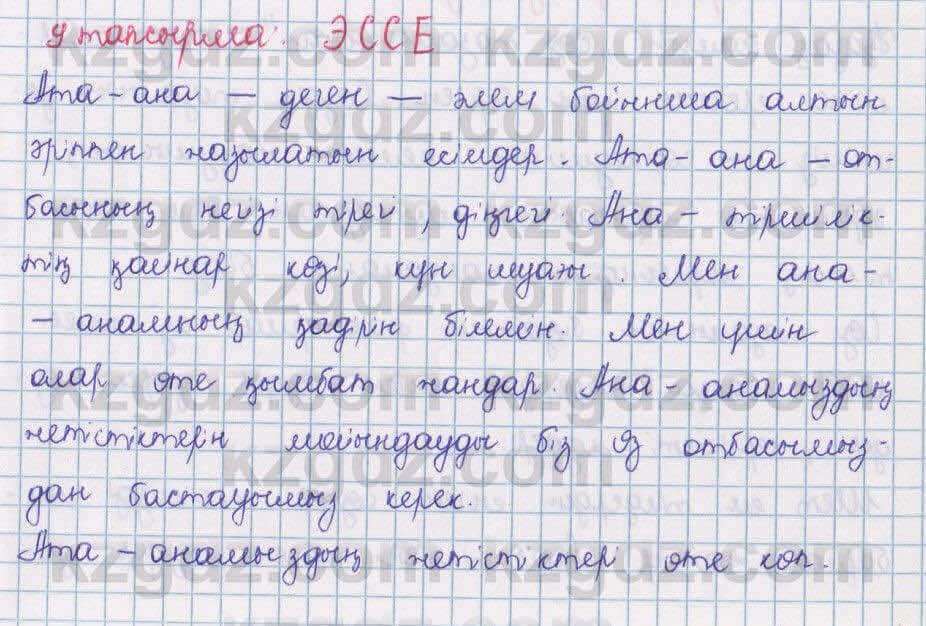 9 тапсырма. ЭССЕ
Ата-ана – деген – әлем бойынша алтын
әріппен жазылатын есімдер. Ата-ана – от-
басының негізгі тірегі, діңгегі. Ана – тіршілік-
тің қайнар көзі, күн шуағы. Мен ана-
– анамның қадірін білемін. Мен үшін
олар өте қымбат жандар. Ана-анамыздың
жетістіктерін мойындауды біз өз отбасымыз-
дан бастауымыз керек.
Ата – анамыздың жетістіктері өте көп.
kzgdz.com